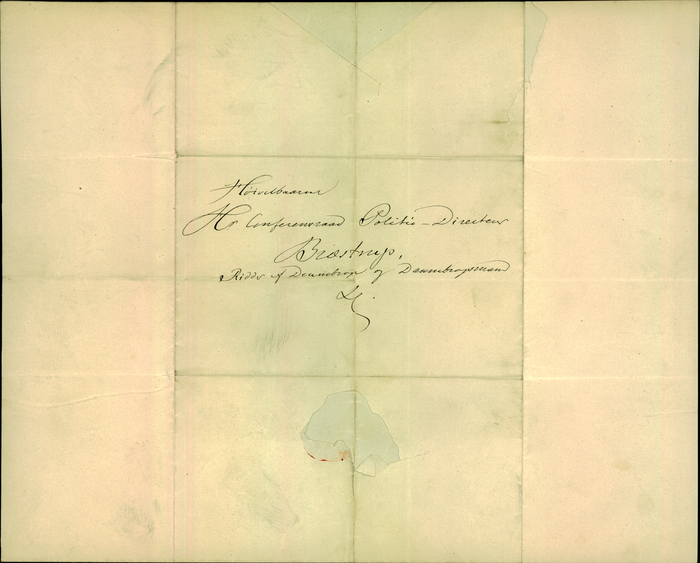 Høivelbaarne
Hr Conferensraad Politie-Directeur
Bræstrup,
Ridder af Dannebrog og Dannebrogsmand